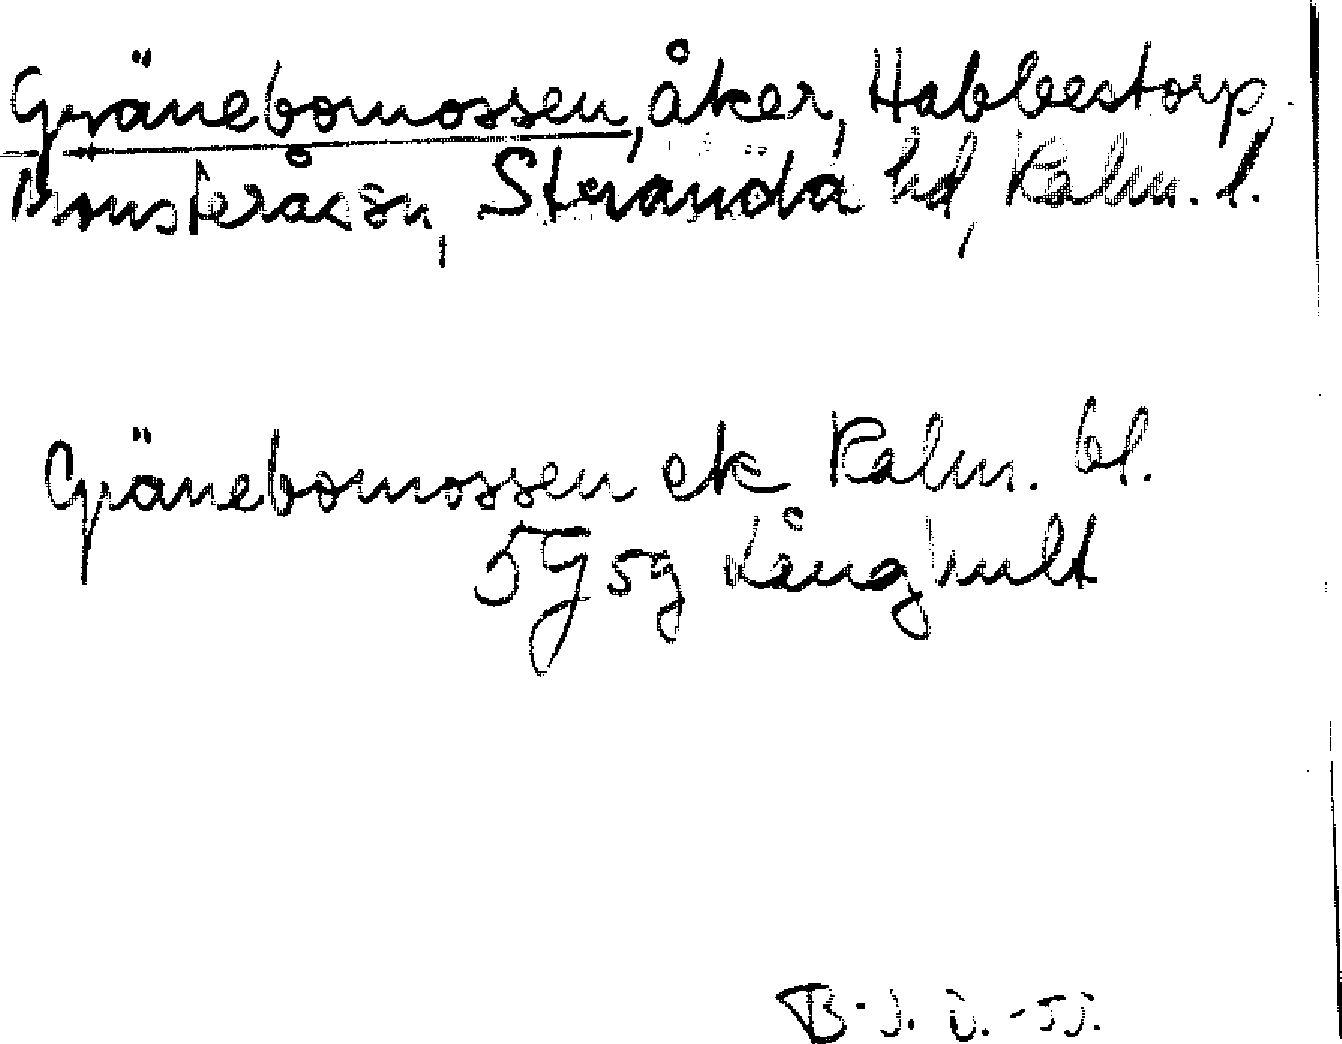 Gränebomossen, åker, Habbestorp,
Mönsterås sn, Stranda hd, Kalm. l.
Gränebomossen ek Kalm. bl.
5G 5g Långhult
B. J. -55.